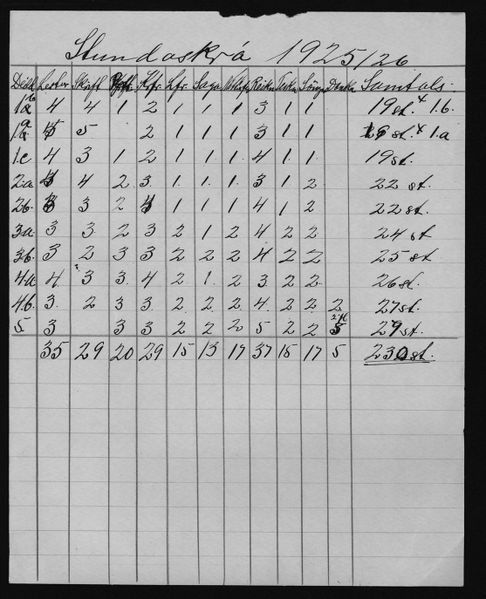 Stundaskrá 1925/26
Deild Lestur Skrift Kfr. Lfr. Saga Reikn. Teikn. Söng. Danska Samtals.
4 4 1 2 1 1 1 3 1 1 19 st. * 1.b.
5 2 1 1 1 3 1 1 st. * 1.a
1.c 4 3 1 2 1 1 1 4 1 1 19 st.
2.a 4 2 3 1 1 1 3 1 2 22 st.
2b. 3 2 1 1 1 4 1 2 22 st.
3a 3 3 2 3 2 1 2 4 2 2 24 st
3b. 3 2 3 3 2 2 2 4 2 2 25 st
4a 4 3 3 4 2 1 2 3 2 2 26 st.
4.b. 3 2 3 3 2 2 2 4 2 2 2 27 st.
5. 3 3 3 2 2 2 5 2 2 29 st.
35 29 20 29 15 13 17 37 15 17 5 230 st.